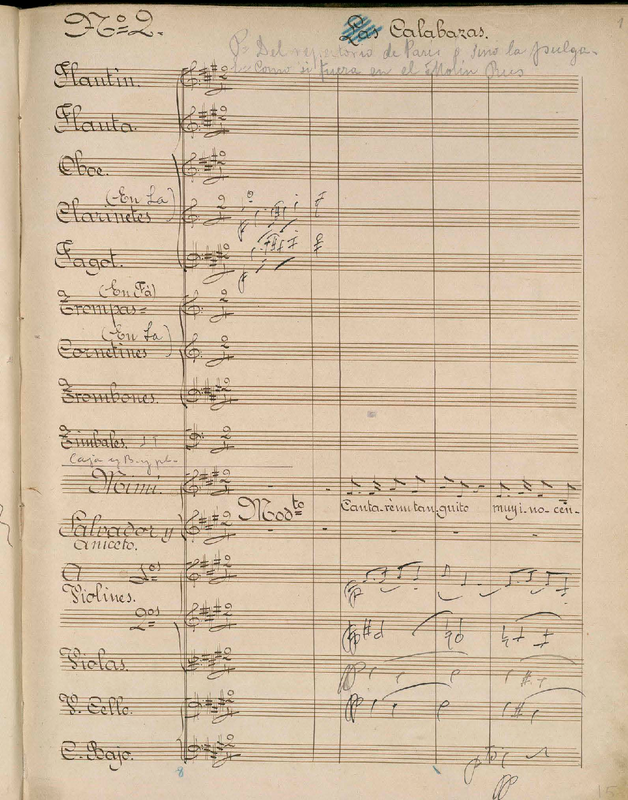 Nº 2.
Las Calabazas.
1
Pª Del repertorio de Paris o sino la pulga.
Como si fuera en el Molin Rus
Flautin.
Flauta.
Oboe.
(En La)
Clarinetes
Fagot.
(En Fá)
2 Trompas=
(En La)
2 Cornetines
2 Trombones.
Timbales.
Caja y B. y pl.
Mimi.
Modto
Canta-ré un tan-guito muy i-no-cen-
Salvador y
Aniceto.
1os
Violines.
2os
Violas.
V. Cello.
C. Bajo.
8
15